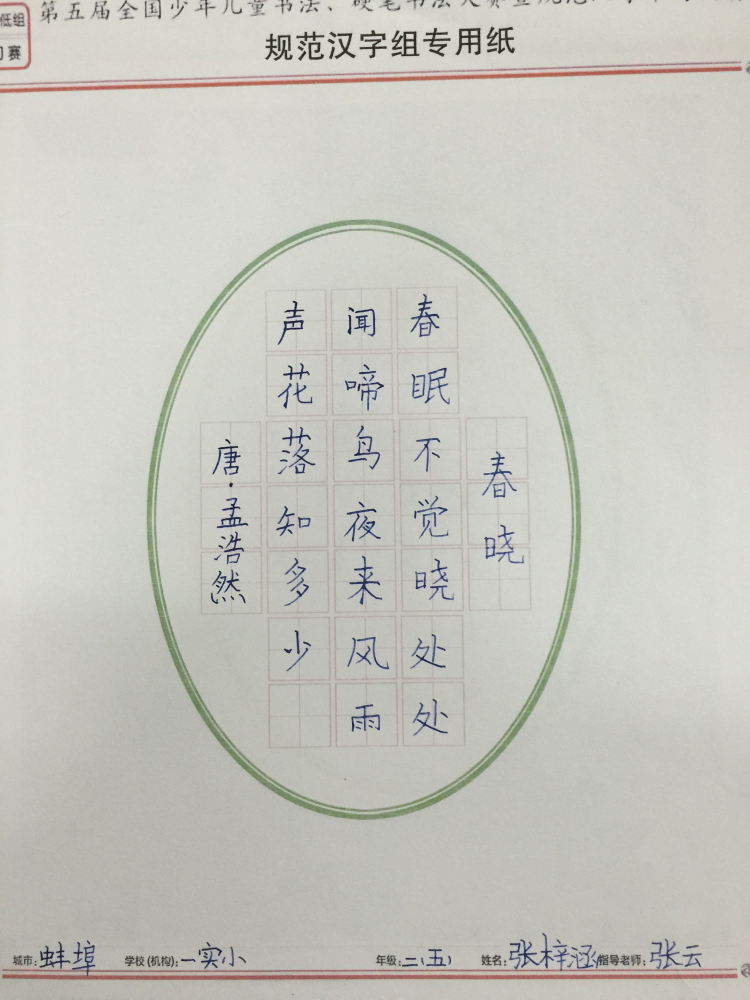 第五届全国少年儿童书法、硬笔书法大赛暨规范
低组
赛
规范汉字组专用纸
春晓
春眠不觉晓处处
闻啼鸟夜来风雨
声花落知多少
唐·孟浩然
城市:蚌埠 学校(机构):一实小 年级:二(五) 姓名:张梓涵 指导老师:张云